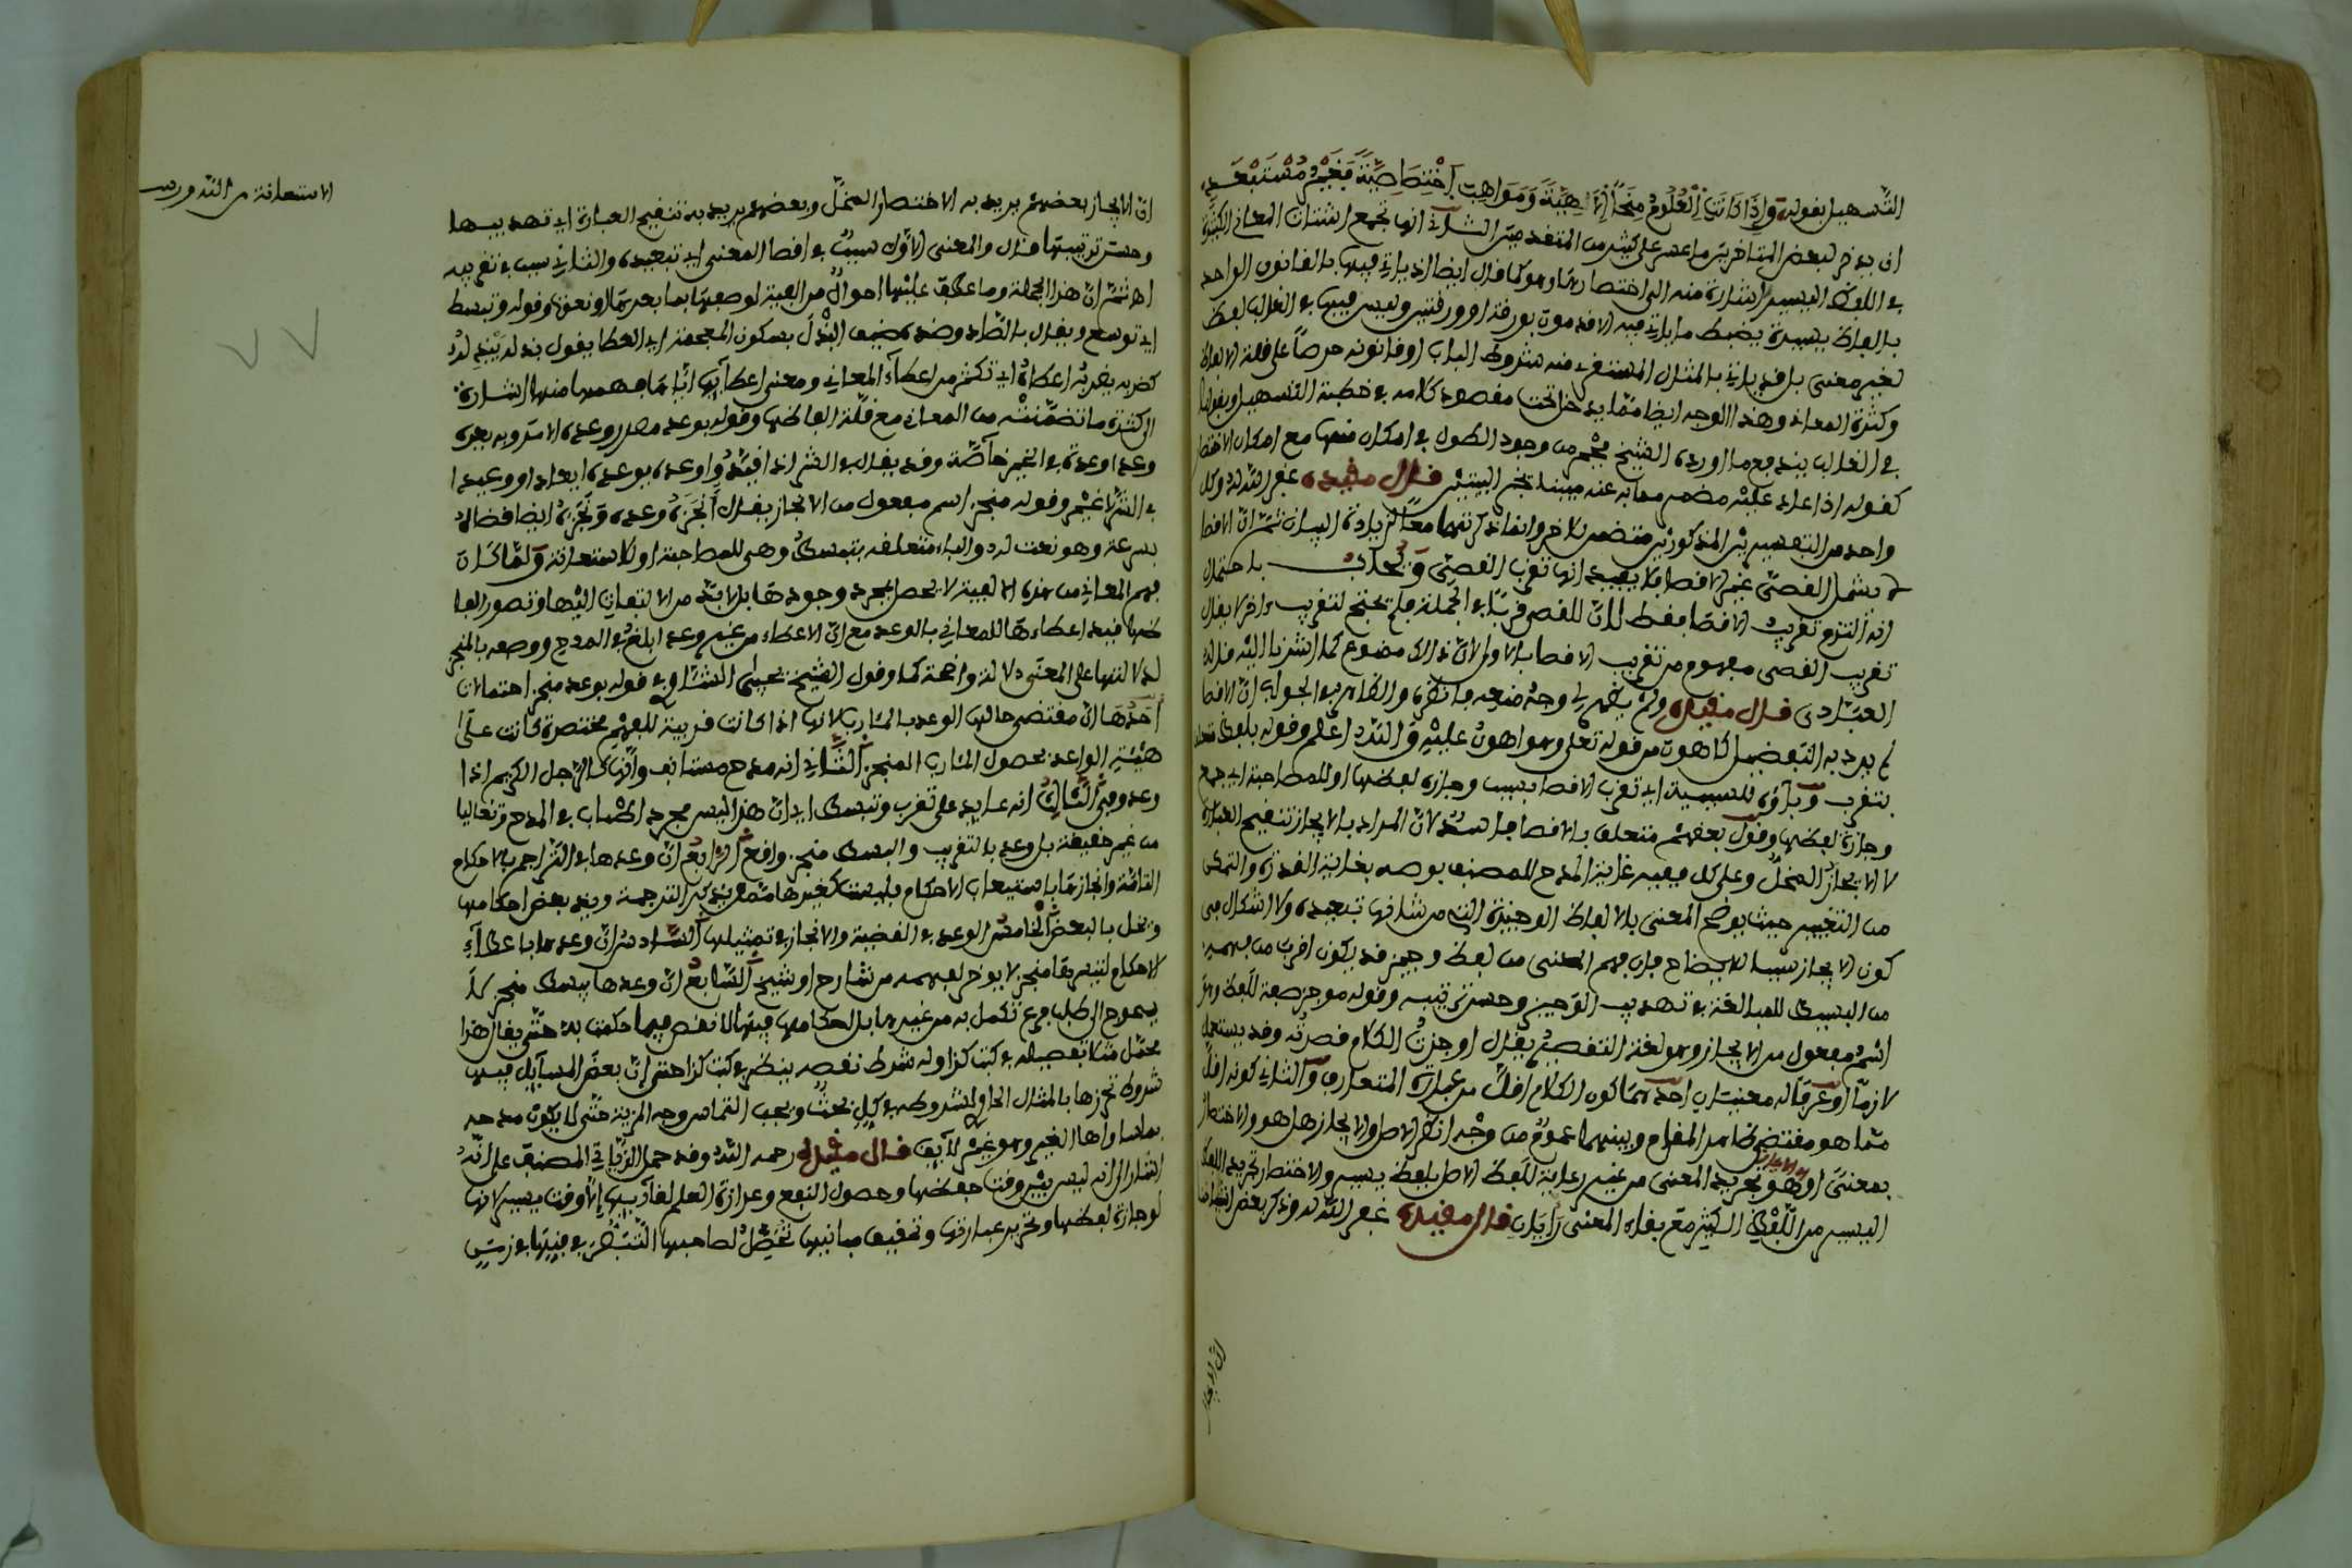 التسهيل بقوله وإذا كانت العلوم منحا إلهية ومواهب اختصاصية فغير مستبعد
ان يدخر لبعض المتاخرين ما عسر على كثير من المتقدمين الثاني انها تجمع اشتات المعاني الكثيرة
في اللفظ اليسير اشارة منه الى اختصارها وهو كما قال ايضا اذ ياتي فيها بالقانون الواحد
بالفاظ يسيرة يضبط ما ياتي فيه الاقدمون بورقة او ورقتين وليس فيها في الغالب لفظ
لغير معنى بل قد ياتي بالمثال المستغنى منه شروط الباب او قانونه حرصا على قلة الالفاظ
وكثرة المعاني وهذا الوجه ايضا مما يدخل تحت مقصود كلامه في خطبة التسهيل
في الغالب يندفع ما اورده الشيخ من وجود الطول في اماكن منها مع امكان الاختصار
كقوله اذا عاد عليه مضمر مما به عنه مبينا يخبر البيتين قال مقيده غفر الله له وكل
واحد من التفسيرين المذكورين متضمن للاخر وانما ذكرتهما معا لزيادة البيان ثم ان الاقصا
لا يشمل القصي غير الاقصا فلا يفيد انها تقرب القصي ويجاب باحتمال
انه التزم تقريب الاقصا فقط لان للقصي قربا في الجملة فلم يحتج لتقريب واخر لا يقال
تقريب القصي مفهوم من تقريب الاقصا بالاولى لان ذلك ممنوع كما اشرنا اليه قاله
العبادي قال مقيده ولم يظهر لي وجه منعه فانظره والظاهر في الجواب ان الاقصا
لم يرد به التفضيل كاهون من قوله تعلى وهو اهون عليه والله اعلم وقوله بلفظ متعلق
بتقرب وباؤه للسببية اي تقرب الاقصا بسبب وجازة لفظها او للمصاحبة اي مع
وجازة لفظها وقول بعضهم متعلق بالاقصا فاسد لان المراد بالايجاز تنقيح العبارة
لا الايجاز المخل وعلى كل ففيه غاية المدح للمصنف بوصفه بغاية القدرة والتمكن
من التعبير حيث يوضح المعنى بالالفاظ الوجيزة التي من شانها تبعيده ولا اشكال في
كون الايجاز سببا للايضاح فان فهم المعنى من لفظ وجيز قد يكون اقرب من فهمه
من البسيط للمبالغة في تهذيب الوجيز وحسن ترتيبه وقوله موجز صفة للفظ وهو
اسم مفعول من الايجاز وهو لغة التقصير يقال اوجزت الكلام قصرته وقد يستعمل
لازما وعرفا له معنيان احدهما كون الكلام اقل من عبارة المتعارف والثاني كونه اقل
مما هو مقتضى ظاهر المقام وبينهما عموم من وجه انظر الاصل والايجاز هل هو والاختصار
بمعنى او الايجاز هو تجريد المعنى من غير رعاية للفظ الاصل بلفظ يسير والاختصار تجريد اللفظ
اليسير من اللفظ الكثير مع بقاء المعنى رايان قال مقيده غفر الله له وذكر بعض اشياخنا
ان الايجاز
ان الايجاز بعضهم يريد به الاختصار المخل وبعضهم يريد به تنقيح العبارة اي تهذيبها
وحسن ترتيبها قال والمعنى الاول سبب في اقصا المعنى اي تبعيده والثاني سبب في تقريبه
اه ثم ان هذا الجملة وما عطف عليها احوال من الفية لوصفها بما بعدها او نعوت وقوله وتبسط
اي توسع ويقال بالصاد وضده ضيق البذل بسكون المعجمة اي العطا يقول بذله يبذله
كضربه يضربه اعطاه اي تكثر من اعطاء المعاني ومعنى اعطائها اياها فهمها منها اشارة
الى كثرة ما تضمنته من المعاني مع قلة الفاظها وقوله بوعد مصدر وعده الامر وبه يعده
وعدا وعدة في الخير خاصة وقد يقال في الشر اذا قيد واوعده يوعده ايعادا ووعيدا
في الشر لا غير وقوله منجز اسم مفعول من الانجاز يقال انجزه وعده ونجزه ايضا قضاه
بسرعة وهو نعت له والباء متعلقة بتبسط وهي للمصاحبة او للاستعانة ولما كان
فهم المعاني من هذه الالفية لا يحصل بمجرد وجودها بل لا بد من الالتفات اليها وتصور الفا
ظها قيد اعطاءها للمعاني بالوعد مع ان الاعطاء من غير وعد ابلغ في المدح ووصفه بالمنجز
لدلالتها على المعنى دلالة واضحة كما وقول الشيخ يحيى الشاوي في قوله بوعد منجز احتمالات
احدها ان مقتضى حالها الوعد بالمئارب لانها اذا كانت قريبة للفهم مختصرة كانت على
هيئة الواعد بحصول المئارب المنجز الثاني انه مدح مستانف وانها كالرجل الكريم اذا
وعد وفى الثالث انه عايد على تقرب وتبسط اي ان هذا ليس مجرد اطناب في المدح وتغاليا
من غير حقيقة بل وعد بالتقريب والبسط منجز واقع الرابع ان وعدها في التراجم بالاحكام
التامة وانجازها باستيعاب الاحكام فليست كغيرها ممن يذكر الترجمة ويذكر بعض احكامها
ويخل بالبعض الخامس الوعد في القضية والانجاز في تمثيلها السادس ان وعدها باعطاء
الاحكام لتبسيطها منجز لا يوخر لفهمه من شارح او شيخ السابع ان وعدها ببسط منجز لا
يحوج الى طلب فرع تكمل به من غيرها بل احكامها فيها لا نقص فيما حكمت به حتى يقال هذا
مجمل مثلا تفصيله في كتب كذا وله شرط نقصه ينظر في كتب كذا حتى ان بعض المسايل فيها
شروط تحرزها بالمثال الحاوي لشروطه في كل بحث ويجب التماس وجه المزية حتى لا يكون مدحه
بما ساواها الغير وهو غير لايق قال مقيده رحمه الله وقد حمل الزياتي المصنف على انه
اشار الى انه ليس بين وقت حفظها وحصول النفع وغزارة العلم لقارئها الا وقت يسير لانها
لوجازة لفظها وتحرير عبارتها وتحقيق مبانيها تحصل لصاحبها التبصر في فنها في زمن
الاستعانة من الله ورب